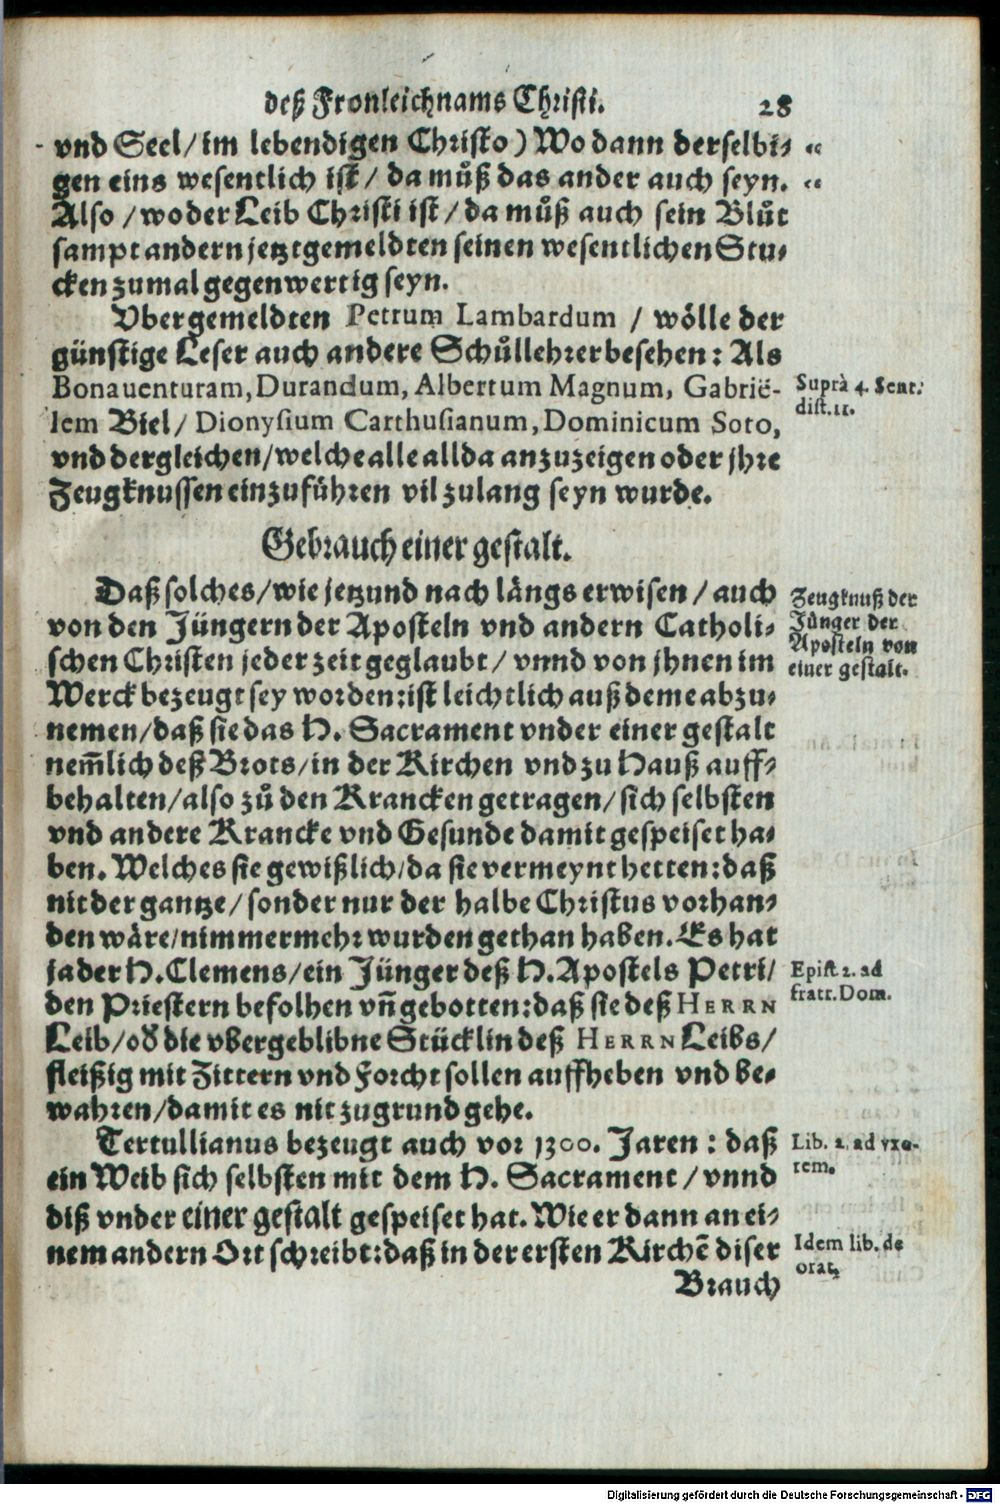 deß Fronleichnams Christi. 28
vnd Seel/im lebendigen Christo) Wo dann derselbi- „
gen eins wesentlich ist/ da můß das ander auch seyn. „
Also /wo der Leib Christi ist/da můß auch sein Blůt
sampt andern jetztgemeldten seinen wesentlichen Stu-
cken zumal gegenwertig seyn.
Vbergemeldten Petrum Lambardum / wölle der
günstige Leser auch andere Schůllehrer besehen: Als
Bonauenturam, Durandum, Albertum Magnum, Gabrië-
lem Biel/ Dionysium Carthusianum, Dominicum Soto,
vnd dergleichen/welche alle allda anzuzeigen oder jhre
Zeugknussen einzuführen vil zulang seyn wurde.
Suprà 4. Sent.
dist. 11.
Gebrauch einer gestalt.
Daß solches/wie jetzund nach längs erwisen / auch
von den Jüngern der Aposteln vnd andern Catholi-
schen Christen jeder zeit geglaubt/ vnnd von jhnen im
Werck bezeugt sey worden: ist leichtlich auß deme abzu-
nemen/daß sie das H. Sacrament vnder einer gestalt
nem̃lich deß Brots/in der Kirchen vnd zu Hauß auff-
behalten/also zů den Krancken getragen/sich selbsten
vnd andere Krancke vnd Gesunde damit gespeiset ha-
ben. Welches sie gewißlich/da sie vermeynt hetten: daß
nit der gantze/sonder nur der halbe Christus vorhan-
den wäre/nimmermehr wurden gethan haben. Es hat
ja der H. Clemens/ein Jünger deß H. Apostels Petri/
den Priestern befolhen vñ gebotten: daß sie deß HERRN
Leib/oď die vbergeblibne Stücklin deß HERRN Leibs/
fleißig mit Zittern vnd Forcht sollen auffheben vnd be-
wahren/damit es nit zugrund gehe.
Zeugknuß der
Jünger der
Aposteln von
einer gestalt.
Epist. 2. ad
fratr. Dom.
Tertullianus bezeugt auch vor 1300. Jaren : daß
ein Weib sich selbsten mit dem H. Sacrament / vnnd
diß vnder einer gestalt gespeiset hat. Wie er dann an ei-
nem andern Ort schreibt: daß in der ersten Kirchẽ diser
Brauch
Lib. 2. ad vxo-
rem.
Idem lib. de
orat.
Digitalisierung gefördert durch die Deutsche Forschungsgemeinschaft - DFG